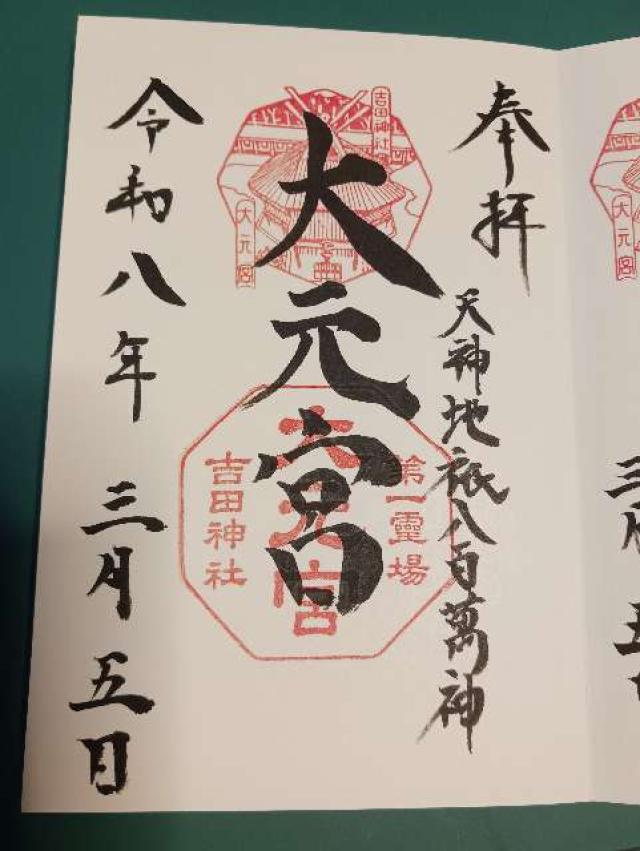 奉拝
天神地祇八百萬神
吉田神社
大元宮
大元宮
第一霊場
大元宮
吉田神社
令和八年 三月 五日
大元宮
三月 五日